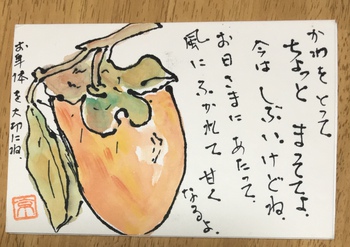 かわをとって
ちょっと まっててよ.
今は しぶいけどね.
お日さまに あたって.
風に ふかれて 甘く
なるよ.
お身体を大切にね.